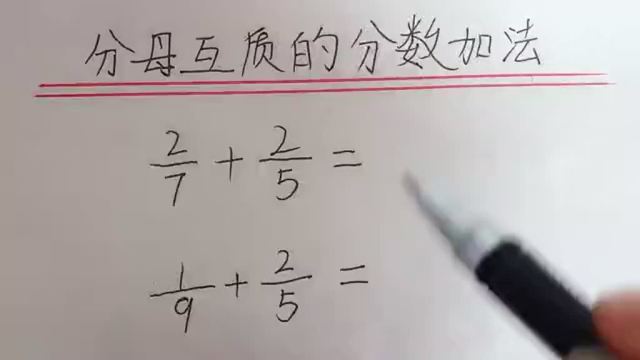 分母互质的分数加法
2/7 + 2/5 =
1/9 + 2/5 =